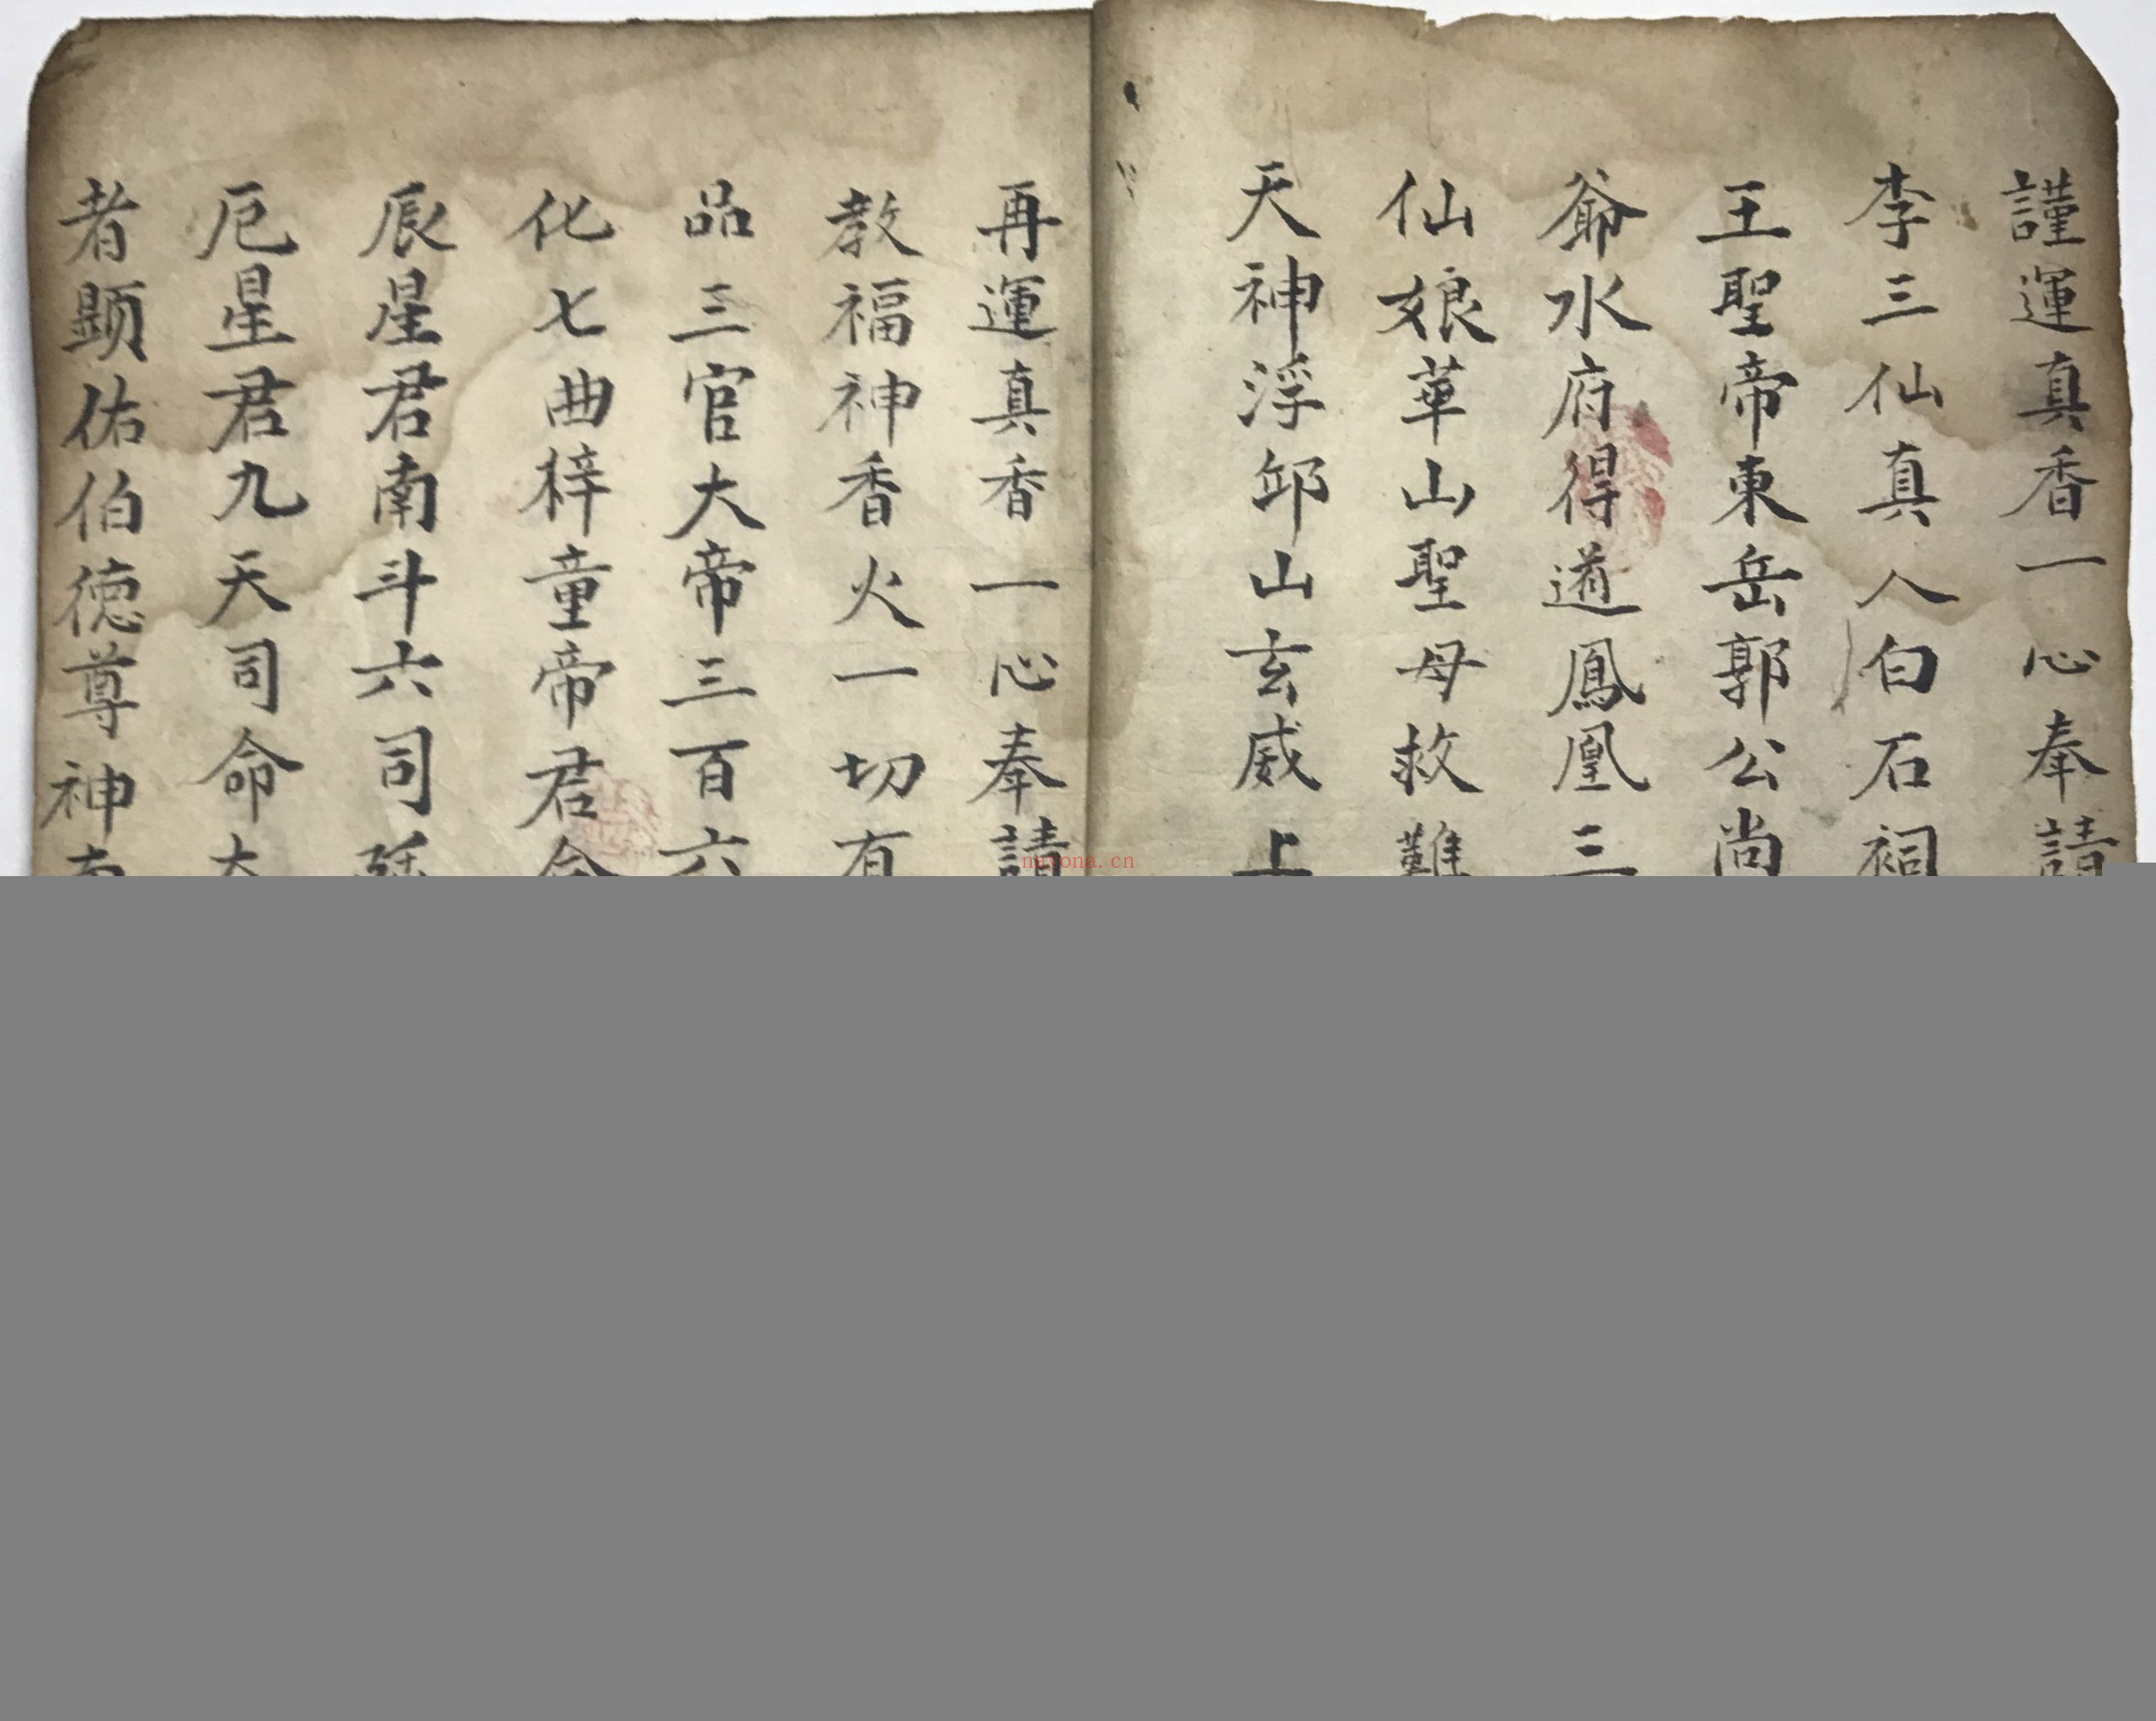 謹運真香一心奉請
李三仙真人白石祠
王聖帝東岳郭公尚
爺水府得道鳳凰三
仙娘華山聖母救難
天神浮邱山玄威上
再運真香一心奉請
教福神香火一切有
品三官大帝三百六
化七曲梓童帝君
辰星君南斗六司
厄星君九天司命
者顕佑伯德尊神
nayona.cn